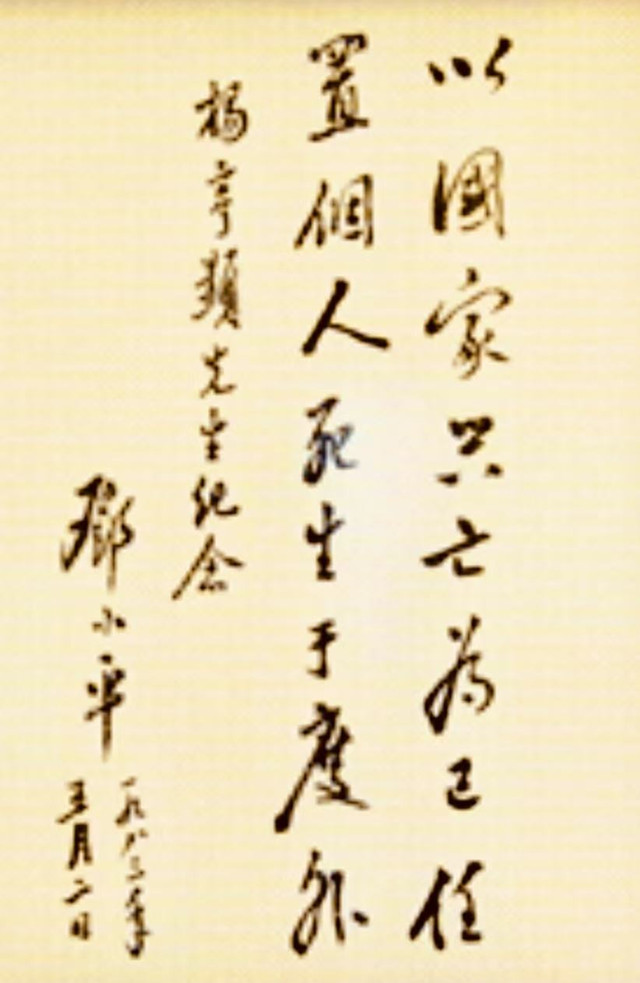 以國家兴亡為己任
置個人死生于度外
楊亨顯先生纪念
鄧小平
一九八三年
五月二日